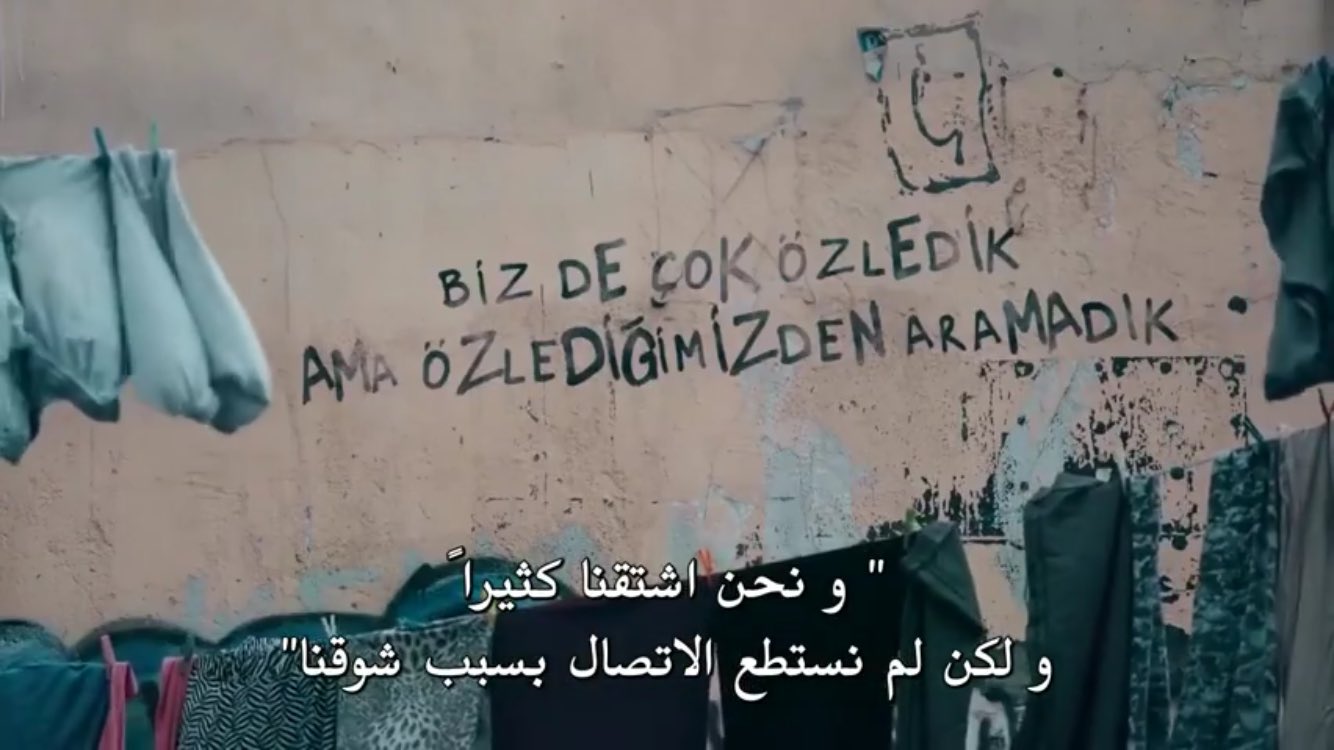 Ч
BİZ DE ÇOK ÖZLEDİK
AMA ÖZLEDİĞİMİZDEN ARAMADIK
" و نحن اشتقنا كثيراً
و لكن لم نستطع الاتصال بسبب شوقنا"